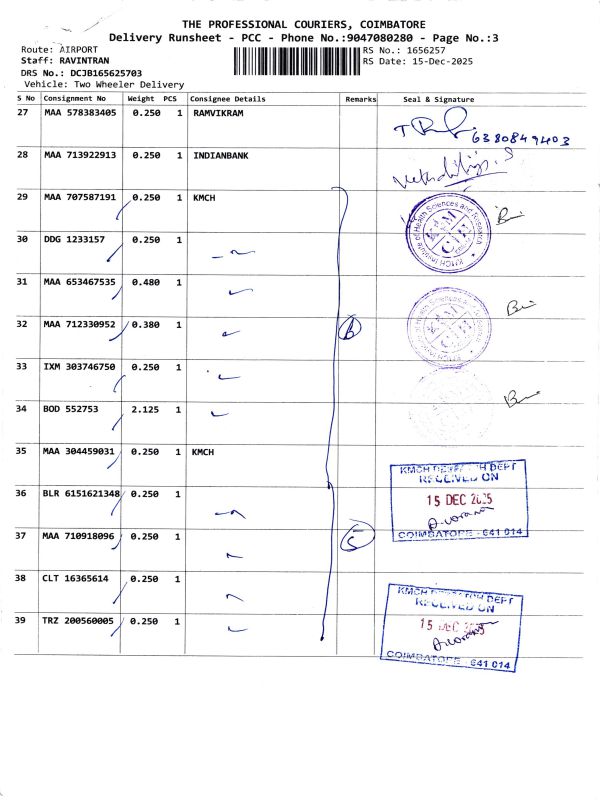 THE PROFESSIONAL COURIERS, COIMBATORE
Delivery Runsheet - PCC - Phone No.:9047080280 - Page No.:3
Route: AIRPORT
RS No.: 1656257
Staff: RAVINTRAN
RS Date: 15-Dec-2025
DRS No.: DCJB165625703
Vehicle: Two Wheeler Delivery
S No Consignment No Weight PCS Consignee Details Remarks Seal & Signature
27 MAA 578383405 0.250 1 RAMVIKRAM
6380849403
28 MAA 713922913 0.250 1 INDIANBANK
29 MAA 707587191 0.250 1 KMCH
KMCH Institute of Health Sciences and Research
30 DDG 1233157 0.250 1
31 MAA 653467535 0.480 1
32 MAA 712330952 0.380 1 B
33 IXM 303746750 0.250 1
34 BOD 552753 2.125 1
35 MAA 304459031 0.250 1 KMCH
KMCH RESEARCH DEPT
RECEIVED ON
36 BLR 6151621348 0.250 1
15 DEC 2025
37 MAA 710918096 0.250 1 C
COIMBATORE - 641 014
38 CLT 16365614 0.250 1
KMCH RESEARCH DEPT
RECEIVED ON
39 TRZ 200560005 0.250 1
15 DEC 2025
COIMBATORE - 641 014